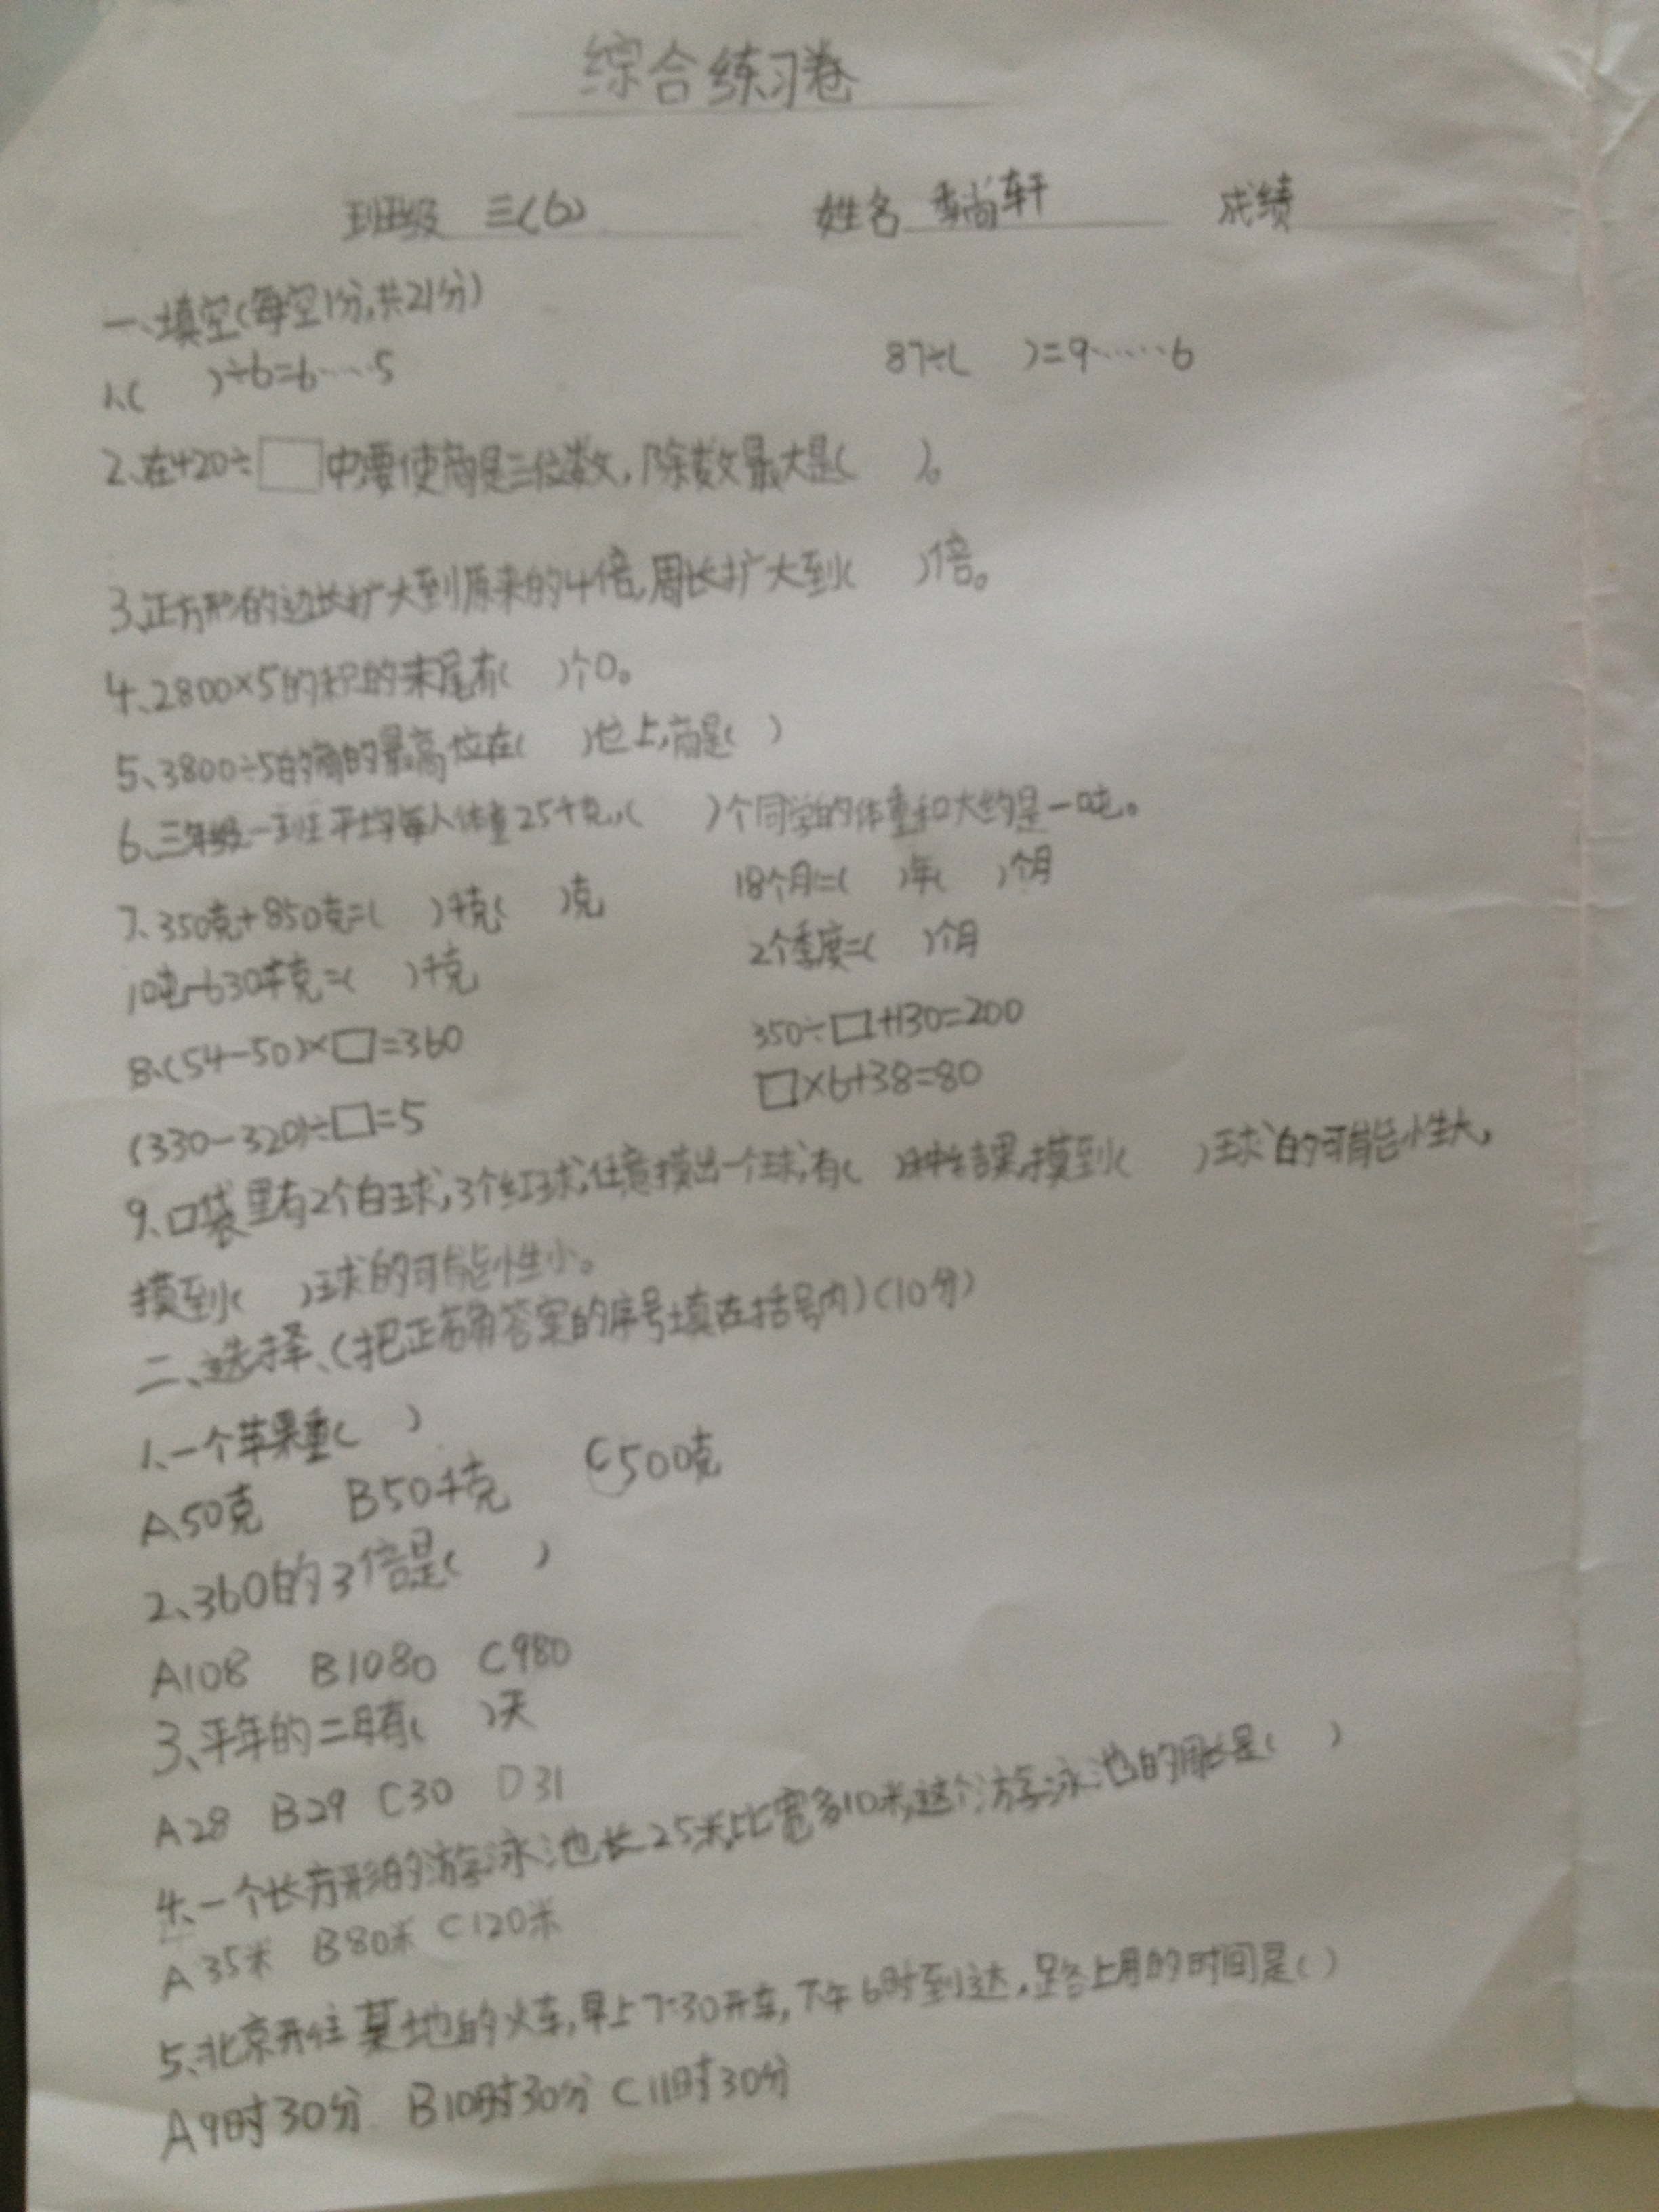 综合练习卷
班级 三(6) 姓名 尚轩 成绩
一、填空(每空1分,共21分)
1、( )÷6=6……5 87÷( )=9……6
2、在420÷□中要使商是三位数,除数最大是( )。
3、正方形的边长扩大到原来的4倍,周长扩大到( )倍。
4、2800×5的积的末尾有( )个0。
5、3800÷5的商的最高位在( )位上,商是( )
6、三年级一班平均每人体重25千克,( )个同学的体重和大约是一吨。
7、350克+850克=( )千克( )克 18个月=( )年( )个月
10吨-630千克=( )千克 2个季度=( )个月
8、(54-50)×□=360 350÷□+130=200
(330-320)÷□=5 □×6+38=80
9、口袋里有2个白球,3个红球,任意摸出一个球,有( )种结果,摸到( )球的可能性大,
摸到( )球的可能性小。
二、选择、(把正确答案的序号填在括号内)(10分)
1、一个苹果重( )
A50克 B50千克 C500克
2、360的3倍是( )
A108 B1080 C980
3、平年的二月有( )天
A28 B29 C30 D31
4、一个长方形的游泳池长25米,比宽多10米,这个游泳池的周长是( )
A35米 B80米 C120米
5、北京开往某地的火车,早上7:30开车,下午6时到达,路上用的时间是( )
A9时30分 B10时30分 C11时30分